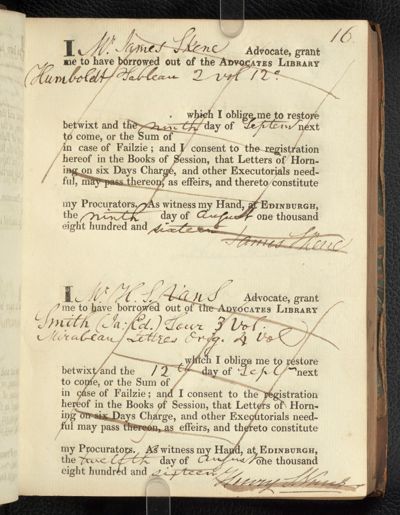 16.
I Mr. James Skene Advocate, grant
me to have borrowed out of the ADVOCATES LIBRARY
(Humboldt) Tableau 2 vol 12o
which I oblige me to restore
betwixt and the ninth day of Septem next
to come, or the Sum of
in case of Failzie; and I consent to the registration
hereof in the Books of Session, that Letters of Horn-
ing on six Days Charge, and other Executorials need-
ful, may pass thereon, as effeirs, and thereto constitute
my Procurators. As witness my Hand, at EDINBURGH,
the ninth day of August one thousand
eight hundred and sixteen
James Skene
I Mr. H. Advocate, grant
me to have borrowed out of the ADVOCATES LIBRARY
Smith (Ja: Ed.) Tour 3 Vol.
Mirabeau Lettres Orig. 4 Vol
which I oblige me to restore
betwixt and the 12th day of Sept next
to come, or the Sum of
in case of Failzie; and I consent to the registration
hereof in the Books of Session, that Letters of Horn-
ing on six Days Charge, and other Executorials need-
ful may pass thereon, as effeirs, and thereto constitute
my Procurators. As witness my Hand, at EDINBURGH,
the twelfth day of August one thousand
eight hundred and sixteen
Henry